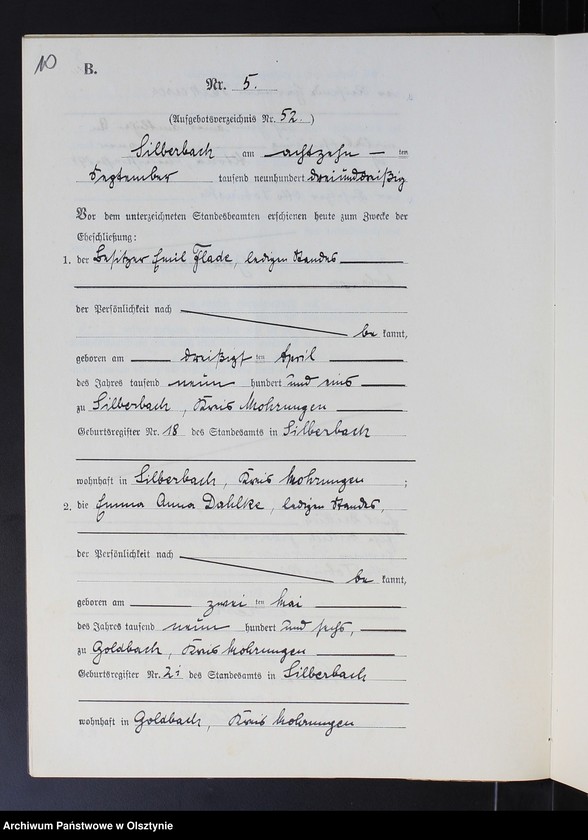 10
B.
Nr. 5.
(Aufgebotsverzeichnis Nr. 52.)
Silberbach am achtzehn ten
September tausend neunhundert dreiunddreißig
Vor dem unterzeichneten Standesbeamten erschienen heute zum Zwecke der
Eheschließung:
1. der Besitzer Emil Flade, ledigen Standes
der Persönlichkeit nach
be kannt,
geboren am dreißigst ten April
des Jahres tausend neun hundert und eins
zu Silberbach, Kreis Mohrungen
Geburtsregister Nr. 18 des Standesamts in Silberbach
wohnhaft in Silberbach, Kreis Mohrungen ;
2. die Emma Anna Dahlke, ledigen Standes,
der Persönlichkeit nach
be kannt,
geboren am zwei ten Mai
des Jahres tausend neun hundert und sechs,
zu Goldbach, Kreis Mohrungen
Geburtsregister Nr. 21 des Standesamts in Silberbach
wohnhaft in Goldbach, Kreis Mohrungen
Archiwum Państwowe w Olsztynie